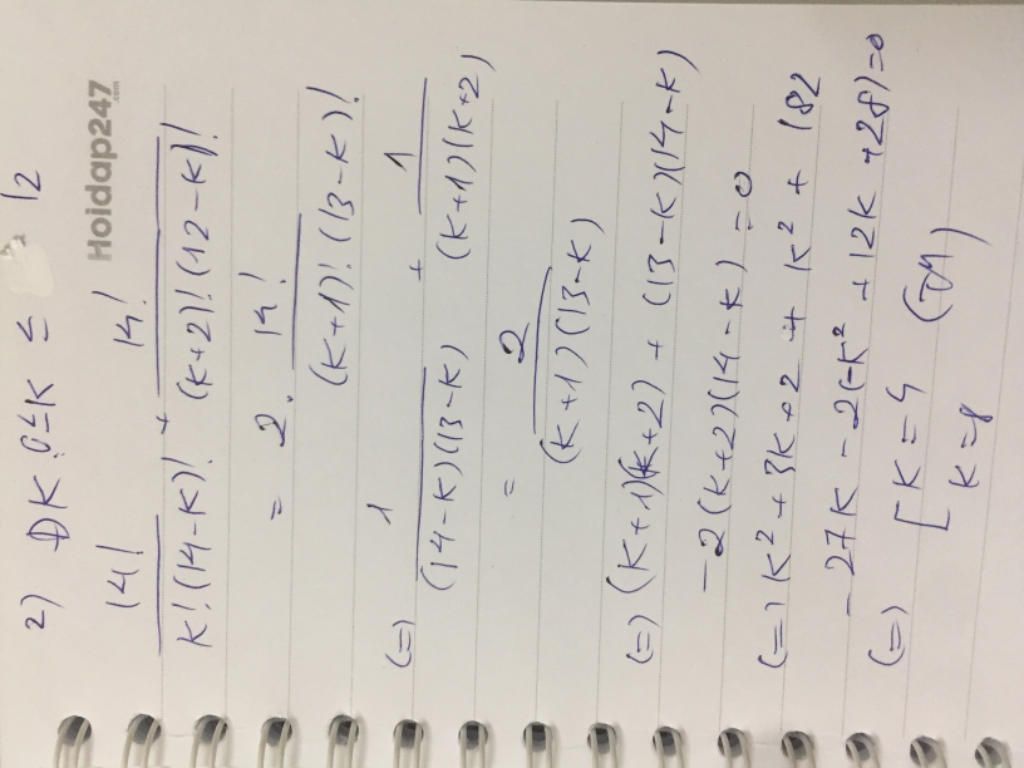 2) ĐK: 0 ≤ K ≤ 12
Hoidap247
.com
14! / K!(14-K)! + 14! / (K+2)!(12-K)!
= 2. 14! / (K+1)!(13-K)!
(=) 1 / (14-K)(13-K) + 1 / (K+1)(K+2)
= 2 / (K+1)(13-K)
(=) (K+1)(K+2) + (13-K)(14-K)
-2(K+2)(14-K) = 0
(=) K² + 3K + 2 + K² + 182
-27K - 2(-K² + 12K + 28) = 0
(=) [ K = 4 (TM)
K = 8